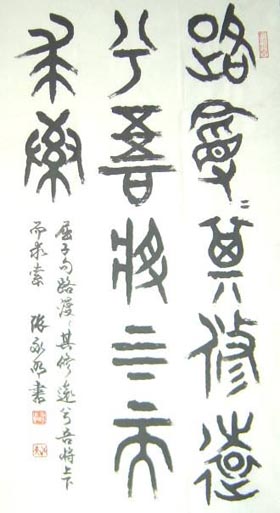 路曼〻其修遠
兮吾將上下而
求索
屈子句路漫〻其修遠兮吾將上下
而求索 張永明書